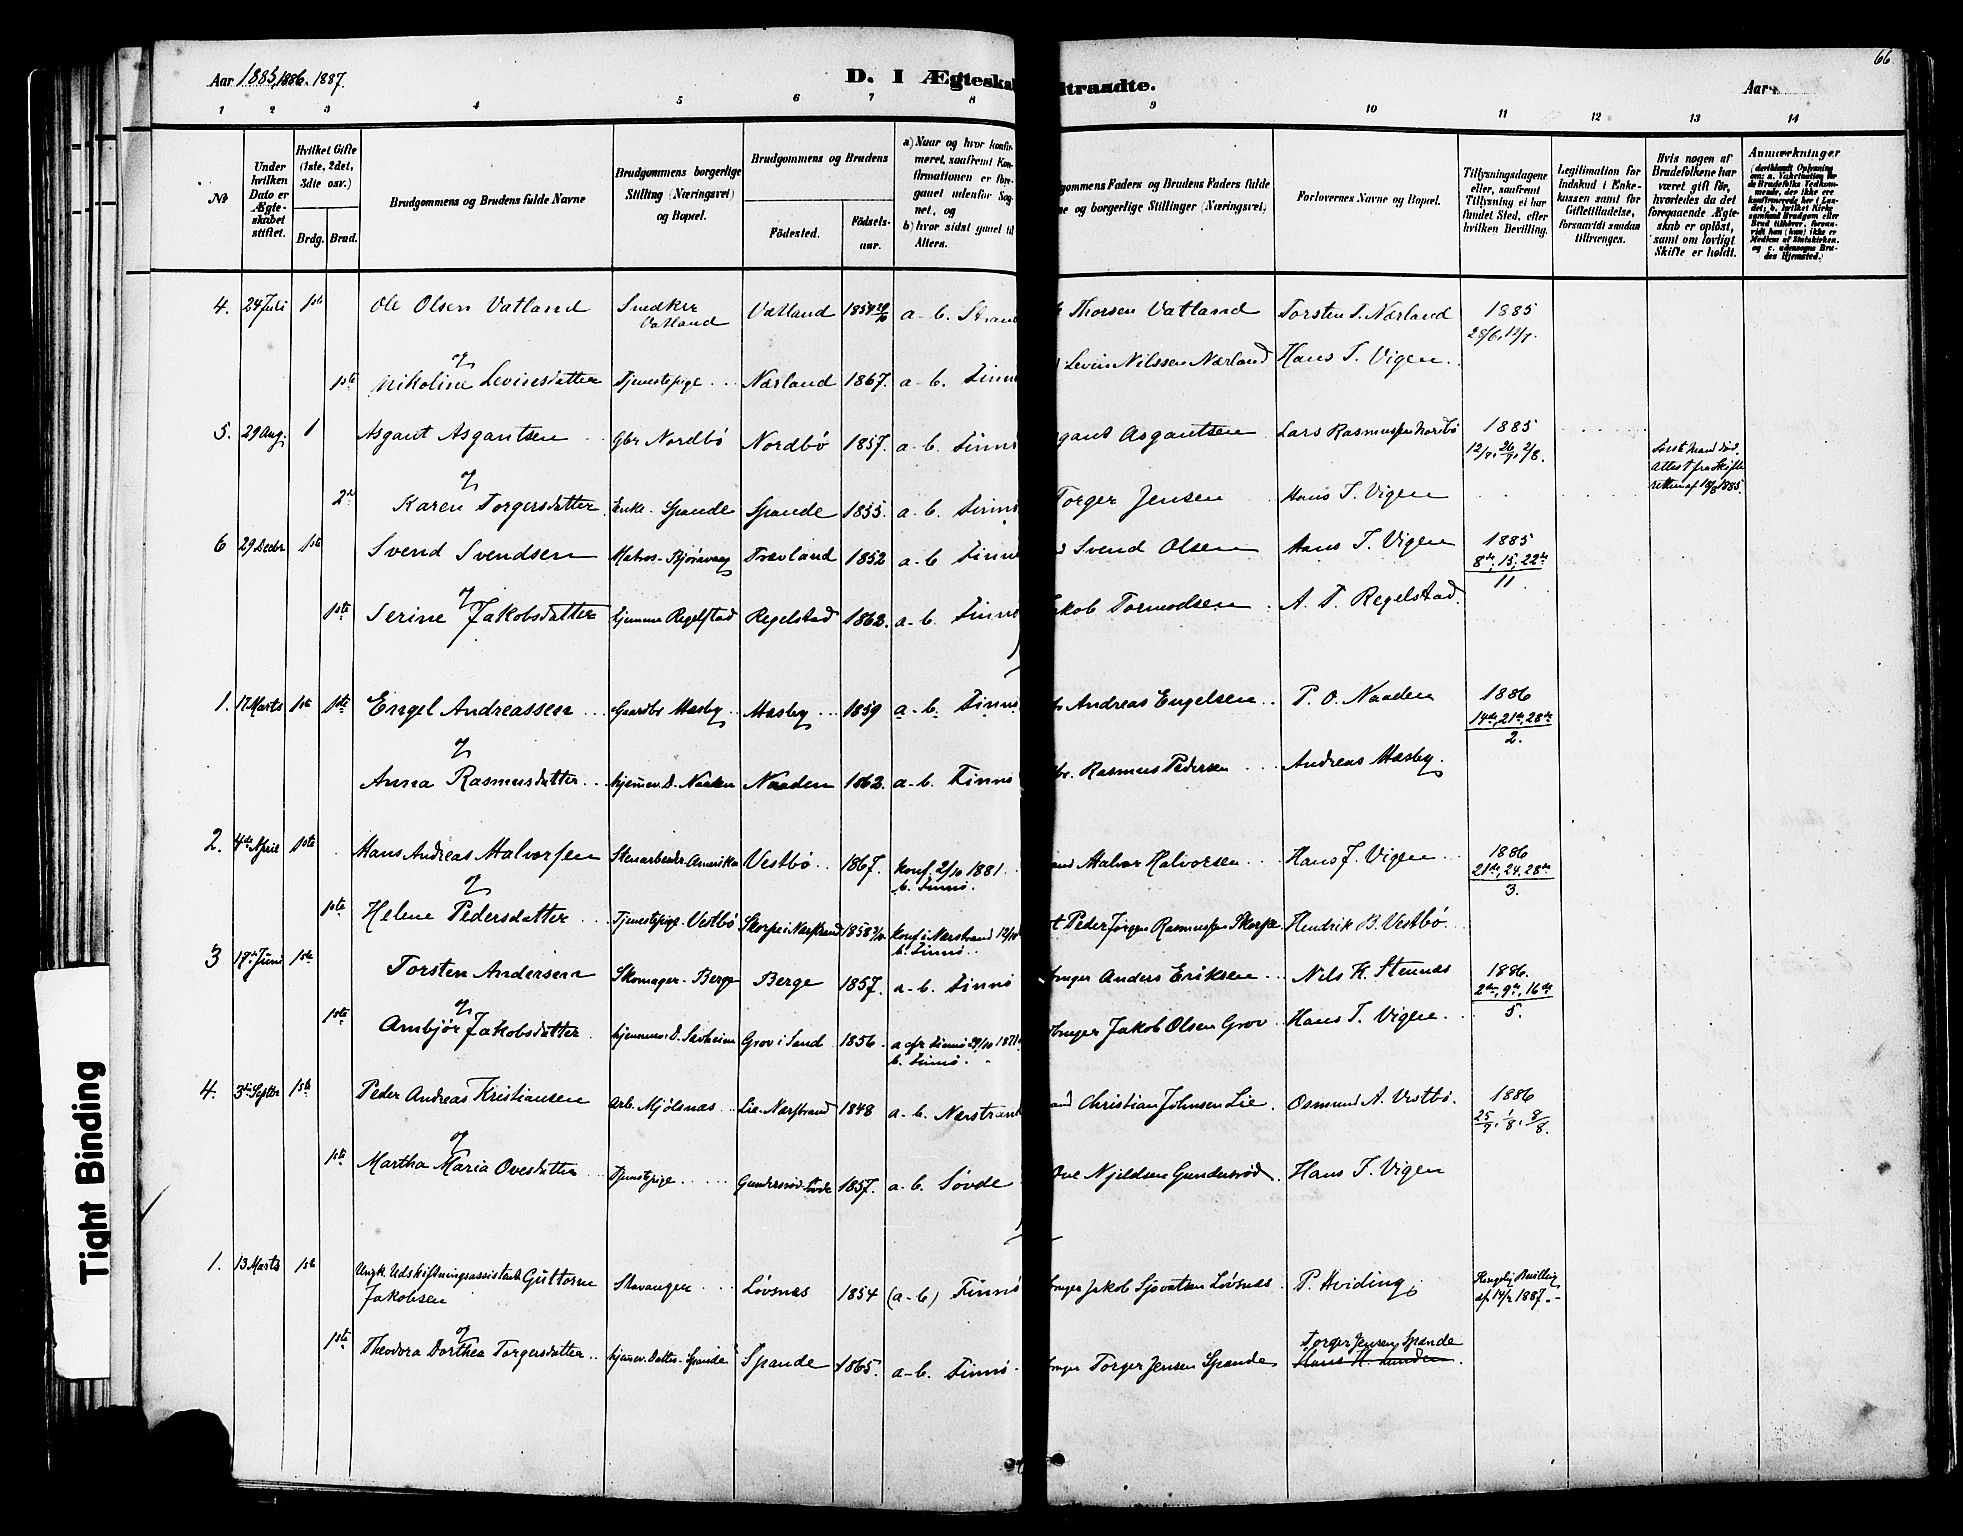 66
Aar 1885, 1886. 1887.
D. I Ægteska
ltraadte.
Aar
1 2 3 4 5 6 7 8 9 10 11 12 13 14
№
Under hvilken Dato er Ægteskabet stiftet.
Hvilket Gifte (1ste, 2det, 3die osv.)
Brdg. Brud.
Brudgommens og Brudens fulde Navne
Brudgommens borgerlige Stilling (Næringsvei) og Bopæl.
Brudgommens og Brudens
Fødested.
Fødsels-aar.
a) Naar og hvor konfir-
meret, saafremt Kon-
firmationen er fore-
gaaet udenfor Sog-
net, og
b) hvor sidst gaaet til
Alters.
gommens Faders og Brudens Faders fulde
ne og borgerlige Stillinger (Næringsvei)
Forlovernes Navne og Bopæl.
Tillysningsdagene
eller, saafremt
Tillysning ei har
fundet Sted, efter
hvilken Bevilling.
Legitimation for
Indskud i Enke-
kassen samt for
Giftetilladelse,
forsaavidt saadan
tiltrænges.
Hvis nogen af
Brudefolkene har
været gift før,
hvorledes da det
foregaaende Ægte-
skab er opløst,
samt om lovligt
Skifte er holdt.
Anmærkninger
4. 24 Juli 1ste Ole Olsen Vatland Snedker Vatland Vatland 1854 a-b. Strand Thorsen Vatland Torsten T. Nærland 1885
28/6, 12/7.
og
1ste Nikoline Levinsdatter Tjenestepige Nærland 1867. a-b. Finnø Levin Nilssen Nærland Hans T. Vigen.
5. 29 Aug. 1 Asgaut Asgautsen Gbr. Nordbø Nordbø 1857. a-b. Finnø gaut Asgautsen Lars Rasmussen Nordbø 1885
12/7, 26/7, 2/8.
Første Mand død.
Attest fra Skifte
retten af 10/8 1885.
og
2den Karen Torgersdatter Enke. Spande Spande 1855. a-b. Finnø Torger Jensen Hans T. Vigen
6 29 Decbr 1ste Svend Svendsen Matros Trævland 1852 a-b Finnø Svend Olsen Hans T. Vigen 1885
8de, 15, 22de
11.
og
1ste Serine Jakobsdatter hjemme Regelstad Regelstad 1862. a-b. Finnø kob Tormodsen A. T. Regelstad.
1. 17 Marts 1ste 1ste Engel Andreassen Gaardbr Hæsby Hæsby 1859 a-b. Finnø Andreas Engelsen P. O. Naaden 1886
14de, 21de, 28de
2.
og
Anna Rasmusdatter hjemmev. D. Naaden Naaden 1862. a-b. Finnø br. Rasmus Pedersen Andreas Hæsby.
2. 4de April 1ste Hans Andreas Halvorsen Stenarbeider Amerika Vestbø 1867. konf. 2/10 1881.
b. Finnø.
and Halvor Halvorsen Hans T. Vigen 1886
21de, 24, 28de
3.
og
1ste Helene Pedersdatter Tjenestepige Vestbø Skorpe i Nærstrand 1858 konf. i Nærstrand
b. Finnø.
t Peder Jørgen Rasmussen Skorpe Hendrik B. Vestbø
3 17de Juni 1ste Torsten Andersen Skomager. Berge Berge 1857. a-b. Finnø bruger Anders Eriksen Nils K. Stennæs 1886.
2den, 9de, 16de
5.
og
1ste Ambjør Jakobsdatter hjemmev. D. Grov i Sand 1856.
b. Finnø.
bruger Jakob Olsen Grov Hans T. Vigen.
4. 3die Septbr 1ste Peder Andreas Kristiansen Arb. Mjølsnæs Lie. Nærstrand 1848 a-b. Nærstrand and Christian Johnsen Lie. Osmund A. Vestbø. 1886
25/7, 1/8, 8/8.
og
1ste Martha Maria Ovesdatter Tjenstpige Søvde 1857. a-b. Søvde Ove Njeldsen Gundersrød. Hans T. Vigen
1. 13 Marts 1ste Ungk. Udskiftningsassistent Guttorm
Jakobsen
Stavanger Løvsnæs 1854 (a-b) Finnø bruger Jakob Sjovatsen Løvsnæs P. Hviding. Kongelig Bevilling
af 14/2 1887.
og
1ste Theodora Dorthea Torgersdatter hjemmev. Datter. Spande Spande 1865. a-b. Finnø. bruger Torger Jensen Spande Torger Jensen Spande
Tight Binding